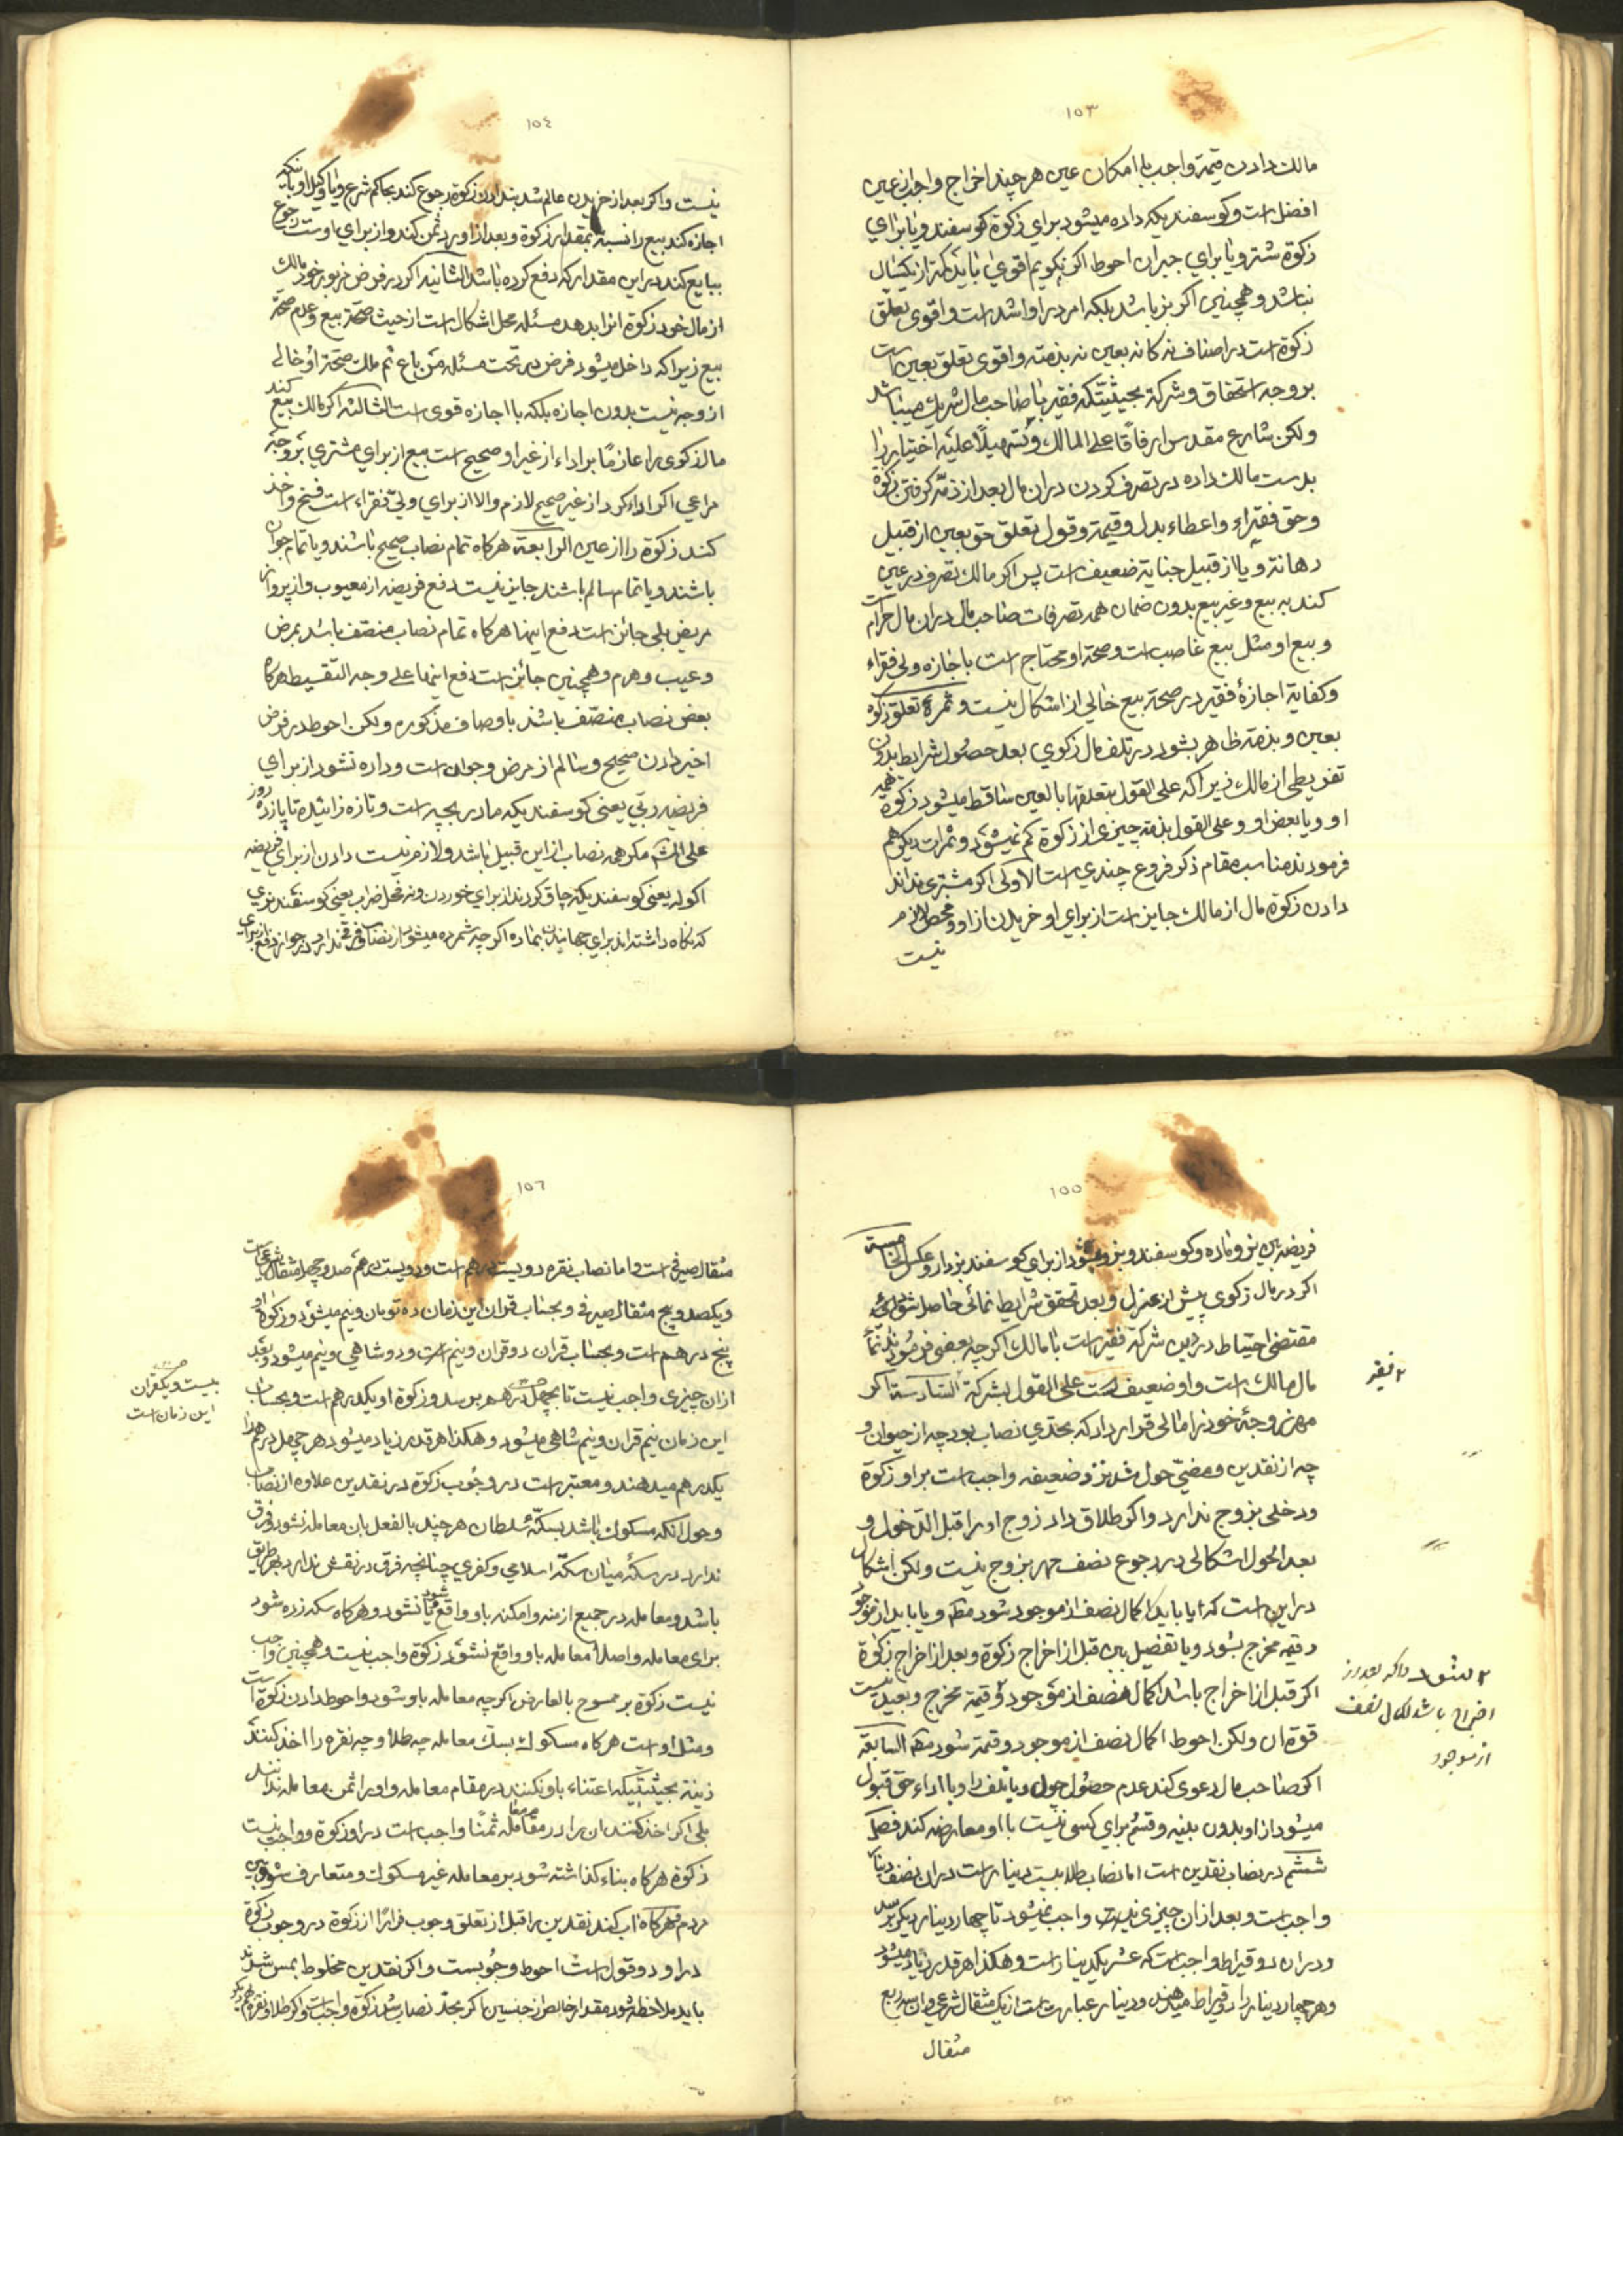 ١٠٣
مالك دادن قیمة واجب با امکان عین هر چند اخراج واجب از عین
افضل است و کوسفندیکه داده میشود برای زکوة کوسفند و یا برای
زکوة شتر و یا برای جبران احوط اکر نکویم اقوی باید کمتر از یکسال
نباشد و همچنین اکر بز باشد بلکه امر در او اشد است و اقوی تعلق
زکوة است در اصناف نه کانه بعین نه بذمته و اقوی تعلق بعین است
بر وجه استحقاق و شرکة بحیثیتکه فقیر با صاحب مال شریك میباشد
ولکن شارع مقدس ارفاقا علی المالك و تسهیلا علیه اختیار را
بدست مالك داده در تصرف کردن در ان مال بعد از ذمه کرفتن زکوة
و حق فقیر او و اعطاء بدل و قیمة و قول تعلق حق بعین از قبیل
رهانة و یا از قبیل جنایة ضعیف است پس اکر مالك تصرف در عین
کند به بیع و غیر بیع بدون ضمان همه تصرفات صاحب مال در ان مال حرام است
و بیع او مثل بیع غاصب است و صحة او محتاج است باجازه ولی فقراء
و کفایة اجازهٔ فقیر در صحة بیع خالی از اشکال نیست و ثمرهٔ تعلق زکوة
بعین و بذمة ظاهر بشود در تلف مال زکوی بعد حصول شرایط بدون
تفریطی از مالك زیرا که علی القول بتعلقها بالعین ساقط میشود زکوة همه
او و یا بعض او و علی القول بذمته چیزی از زکوة کم نمیشود و ثمرات دیکر هم
فرمودند مناسب مقام ذکر فروع چندی است الاولی اکر مشتری نداند
دادن زکوة مال از مالك جایز است از برای او خریدن از او و فحص لازم
نیست
١٠٤
نیست و اکر بعد از خریدن عالم شد بندادن زکوة رجوع کند بحاکم شرع و یا وکیل او یا اینکه
اجازه کند بیع را نسبة بمقدار زکوة و بعد از او رد ثمن کند و از برای اوست رجوع
ببایع کند در این مقدار که دفع کرده باشد الثانیه اکر در فرض مزبور خود مالك
از مال خود زکوة انرا بدهد مسئله محل اشکال است از حیث صحة بیع و عدم صحة
بیع زیرا که داخل میشود فرض در تحت مسئله من باع ثم ملك صحة او خالی
از وجه نیست بدون اجازه بلکه با اجازه قوی است الثالثه اکر مالك بیع کند
مال زکوی را عازما بر اداء از غیر او صحیح است بیع از برای مشتری بر وجه
مراعی اکر اداء کرد از غیر صحیح لازم والا از برای ولی فقراء است فسخ و اخذ
کند زکوة را از عین الرابعة هرکاه تمام نصاب صحیح باشند و یا تمام جوان
باشند و یا تمام سالم باشند جایز نیست دفع فریضه از معیوب و از پیر و از
مریض بلی جائز است دفع اینها هرکاه تمام نصاب متصف باشد بمرض
و عیب و هرم و همچنین جائز است دفع اینها علی وجه التقسیط هرکاه
بعض نصاب متصف باشد باوصاف مذکوره ولکن احوط در فرض
اخیر دادن صحیح و سالم از مرض و جوان است و داده نشود از برای
فریضه ربّی یعنی کوسفندیکه مادر بچه است و تازه زائیده تا پازده روز
علی الشه مکر همه نصاب از این قبیل باشد و لازم نیست دادن از برای فریضه
اکوله یعنی کوسفندیکه چاق کردند از برای خوردن و نه فحل ضراب یعنی کوسفند نری
که نکاه داشته اند برای جهانیدن بماده اکر چه شمرده میشود از نصاب فرقی ندارد در جواز دفع از برای
١٠٥
فریضه بین نر و ماده و کوسفند و بز و میشود از برای کوسفند بز داد و عکس الخامسة
اکر در مال زکوی پیش از عزل و بعد تحقق شرایط نمائی حاصل شود
مقتضی احتیاط در این شرکة فقیر است با مالك اکر چه بعضی فرمودند نما
مال مالك است و او ضعیف است علی القول بشرکة السادسة اکر
مهر زوجهٔ خود را مالی قرار داد که بحدی نصاب بود چه از حیوان و
چه از نقدین و مضیّ حول شد نزد ضعیفه واجب است بر او زکوة
و دخلی بزوج ندارد و اکر طلاق داد زوج او را قبل الدخول و
بعد الحول اشکالی در رجوع نصف مهر بزوج نیست ولکن اشکال
در این است که ایا باید اکمال نصف از موجود شود مطم و یا باید از موجود
و قیمة مخرج بشود و یا تفصیل بین قبل از اخراج زکوة و بعد از اخراج زکوة
اکر قبل از اخراج باشد اکمال نصف از موجود و قیمة مخرج و بعید نیست
قوة ان ولکن احوط اکمال نصف از موجود و قیمة شود مطم السابعة
اکر صاحب مال دعوی کند عدم حصول حول و یا تلف را و یا اداء حق قبول
میشود از او بدون بینه و قسم برای کسی نیست با او معارضه کند فصل
ششم در نصاب نقدین است اما نصاب طلا بیست دینار است در ان نصف دینار
واجب است و بعد از ان چیزی نیست واجب نمیشود تا چهار دینار دیکر برسد
و در ان دو قیراط واجب است که عشر یکدینار است و هکذا هر قدر زیاد میشود
و هر چهار دینار را دو قیراط میدهند و دینار عبارت است از یك مثقال شرعی و ان سه ربع
مثقال
٢ فقیر
٢ بشود
اخراج باشد اکمال نصف
از موجود
١٠٦
مثقال صیرفی است و اما نصاب نقره دویست درهم است و دویست درهم صد و چهل مثقال شرعی است
و یکصد و پنج مثقال صیرفی و بحساب قران این زمان ده تومان و نیم میشود و زکوة او
پنج درهم است و بحساب قران دو قران و نیم است و دو شاهی و نیم میشود و بعد
از ان چیزی واجب نیست تا بچهل درهم برسد و زکوة او یکدرهم است و بحساب
این زمان نیم قران و نیم شاهی میشود و هکذا هر قدر زیاد میشود هر چهل درهم را
یکدرهم میدهند و معتبر است در وجوب زکوة در نقدین علاوه از نصاب
و حول انکه مسکوك باشد بسکهٔ سلطان هر چند بالفعل بان معامله نشود و فرق
ندارد در سکهٔ میان سکهٔ اسلامی و کفری چنانچه فرق در نقش ندارد بهر طریق
باشد و معامله در جمیع ازمنه و امکنه باو واقع شود یا نشود و هرکاه سکه زده شود
برای معامله و اصلا معامله باو واقع نشود زکوة واجب نیست و همچنین واجب
نیست زکوة بر ممسوح بالعارض اکر چه معامله باو شود و احوط دادن زکوة است
و مثل اوست هرکاه مسکوك بسك معامله چه طلا و چه نقره را اخذ کنند
زینة بحیثیتیکه اعتناء باو نکنند در مقام معامله و او را ثمن معامله ندانند
بلی اکر اخذ کنند ان را در معامله ثمنا واجب است در او زکوة و واجب نیست
زکوة هرکاه بناء کذاشته شود بر معامله غیر مسکوك و متعارف شود بین
مردم هرکاه اب کند نقدین را قبل از تعلق وجوب فرارا از زکوة در وجوب زکوة
در او دو قول است احوط وجوبست و اکر نقدین مخلوط بمس شدند
باید ملاحظه شود مقدار خالص از جنسین اکر بحد نصاب رسد زکوة واجب است و اکر طلا و نقره
بیست و یکقران
این زمان است